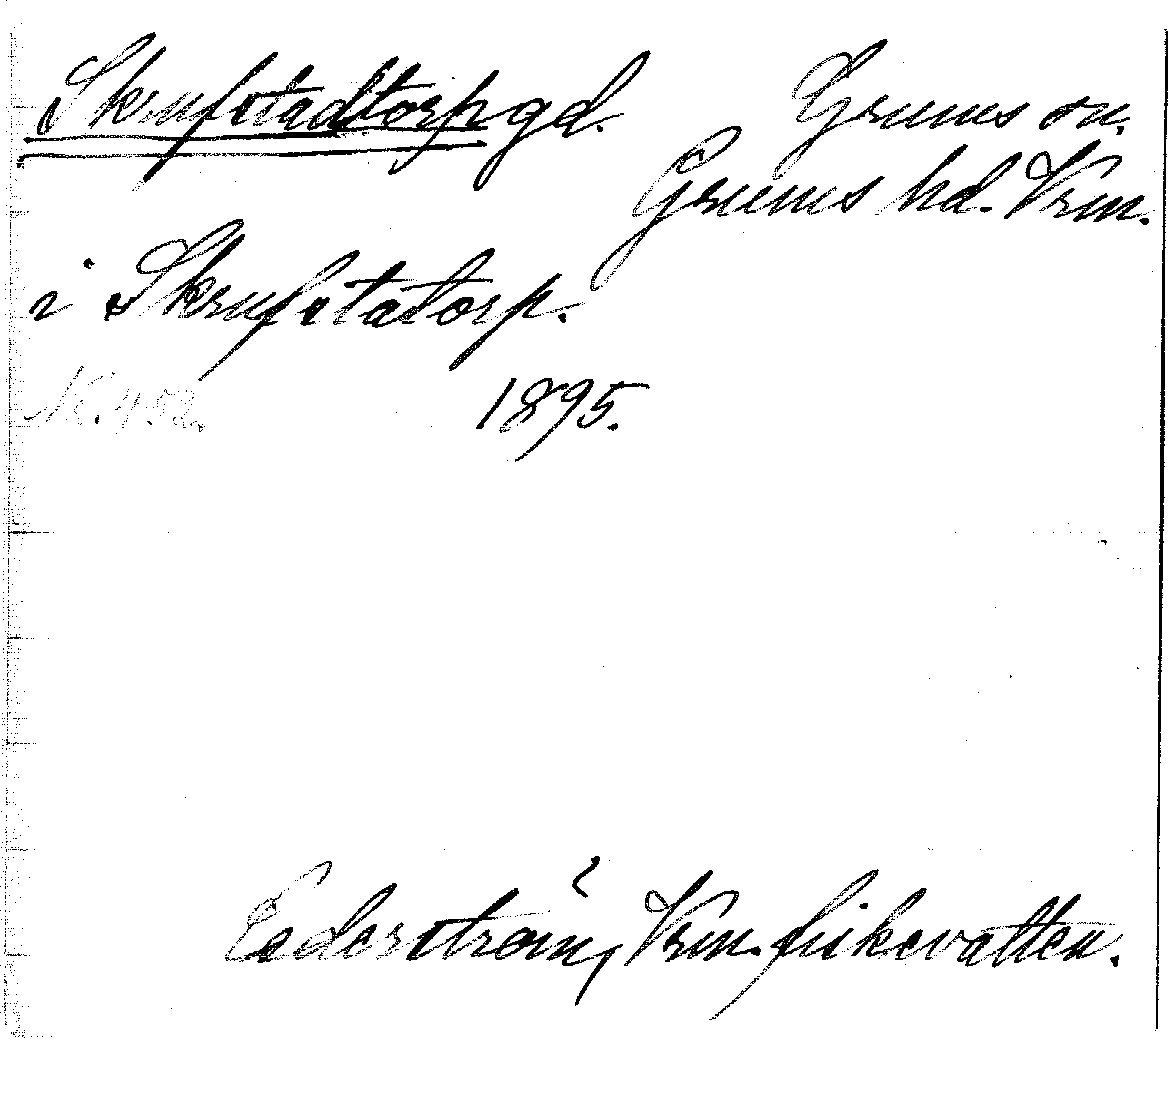 Skrufstadtorp gd. Grums sn.
Grums hd. Vrm.
i Skrufstatorp.
N:o. 452. 1895.
Cederström, Vrm. fiskevatten.